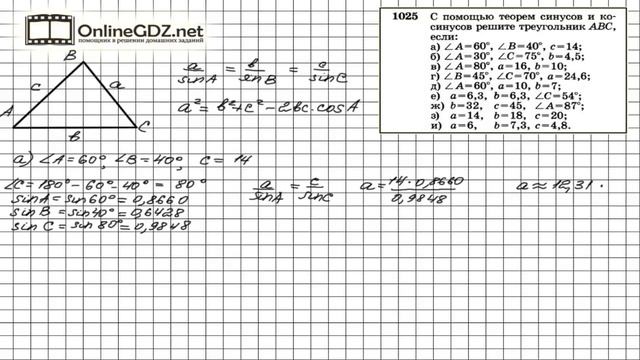 OnlineGDZ.net
помощник в решении домашних заданий
1025 С помощью теорем синусов и ко-
синусов решите треугольник ABC,
если:
а) ∠A=60°, ∠B=40°, c=14;
б) ∠A=30°, ∠C=75°, b=4,5;
в) ∠A=80°, a=16, b=10;
г) ∠B=45°, ∠C=70°, a=24,6;
д) ∠A=60°, a=10, b=7;
е) a=6,3, b=6,3, ∠C=54°;
ж) b=32, c=45, ∠A=87°;
з) a=14, b=18, c=20;
и) a=6, b=7,3, c=4,8.
B
c a
A C
в
a/sinA = в/sinB = a/sinC
a² = в²+c² - 2вc·cosA
а) ∠A=60°, ∠B=40°, c=14
∠C=180°-60°-40°=80°
sinA=sin60°=0,8660
sinB=sin40°=0,6428
sinC=sin80°=0,9848
a/sinA = c/sinC
a=14·0,8660/0,9848
a≈12,31.